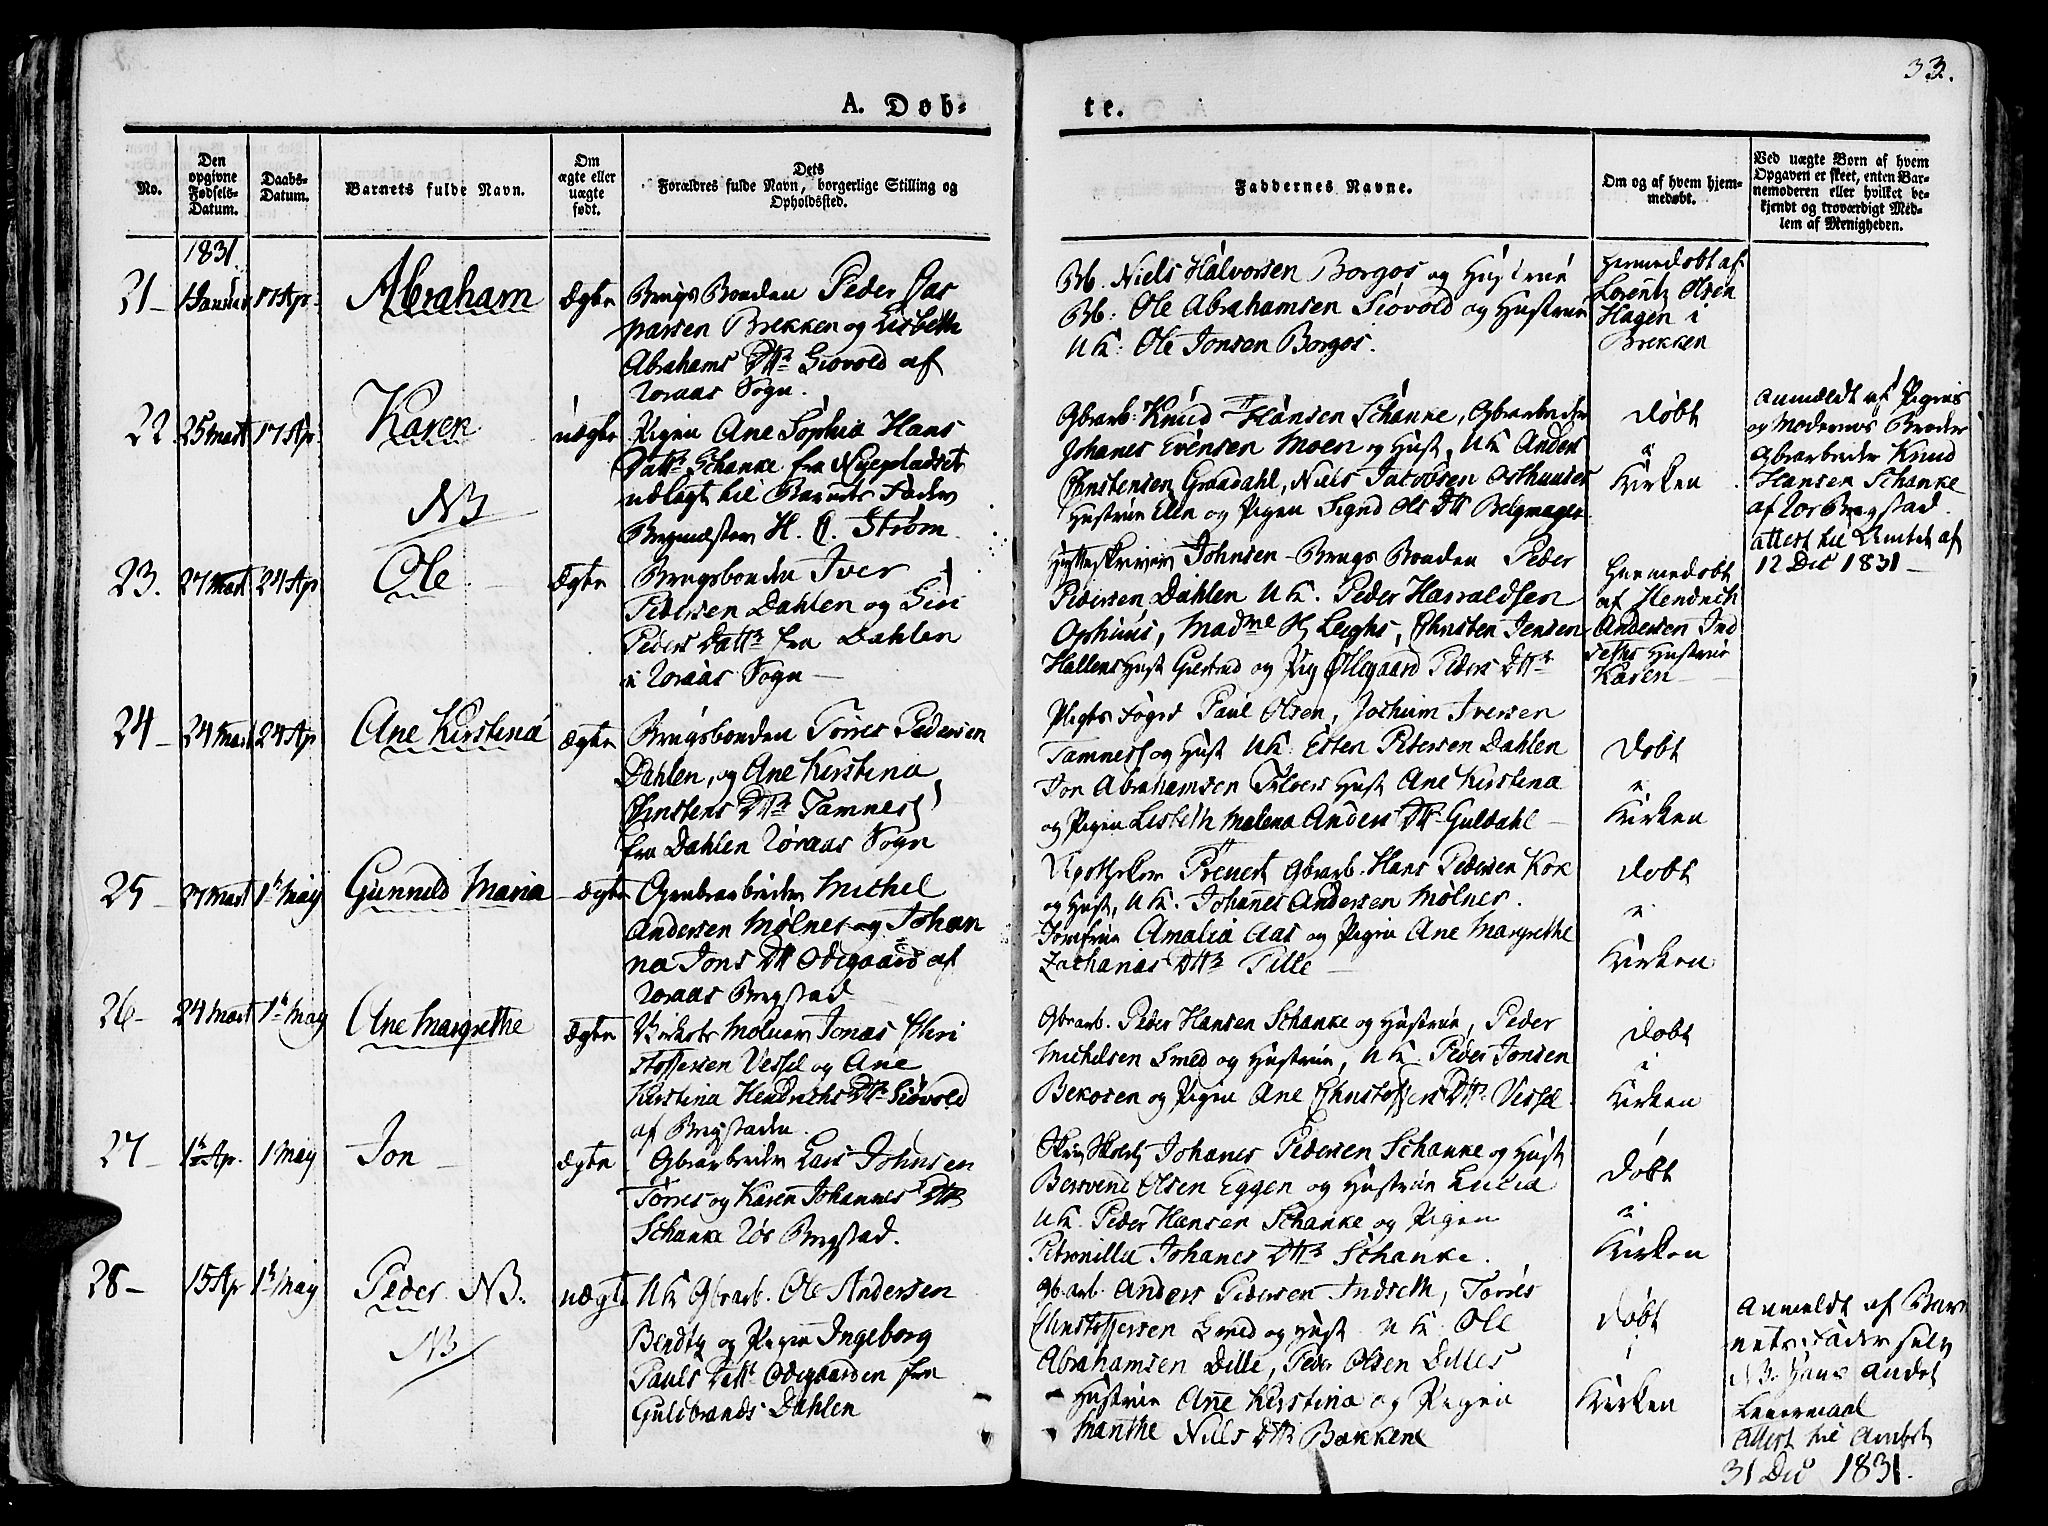 33.
A. Døb-
te.
No.
Den opgivne Fødsels-Datum.
Daabs-Datum.
Barnets fulde Navn.
Om ægte eller uægte født.
Dets Forældres fulde Navn, borgerlige Stilling og Opholdssted.
Faddernes Navne.
Om og af hvem hjemmedøbt.
Ved uægte Børn af hvem Opgaven er skeet, enten Barnemoderen eller hvilket bekjendt og troværdigt Medlem af Menigheden.
1831
21 – 1 Januar 17 Ap. Abraham Ægte
Brugs Bonden Peder Jas
passen Brekken og Lisbeth
Abrahams Dttr Siøvold af
Roraas Sogn.
Bb. Niels Halvorsen Borgos og Hustrue
Bb: Ole Abrahamsen Siovold og Hustrue
UK: Ole Jonsen Borgos.
Hiemedøbt af
Lorentz Olsen
Hagen i
Brekken
22 25 Mart 17 Ap Karen uægte
NB
Pigen Ane Sophia Hans
Datter Schanke fra Nyepladset
udlagt til Barnets Fader
Bergmester H. C. Strøm.
Gbrarb. Knud Hansen Schanke, Gbrarbeider
Johanes Evensen Moen og Hust, UK Anders
Christensen Graadahl, Niels Jacobsen Osthuuses
Hustrue Elen og Pigen Sigrid Ols Dtt Belgmager
døbt
i
Kirken
Anmeldt af Pigens
og Moderens Broder
Gbrarbeider Knud
Hansen Schanke
af Ror Bergstad.
attest til Amtet af
12 Dec 1831 –
23. 27 Mart 24 Ap Ole Ægte
Brugsbonden Iver
Pedersen Dahlen og Siri
Peders Dattr fra Dahlen
i Roraas Sogn –
Hytteskriver Johnsen – Brugs Bonden Peder
Pedersen Dahlen UK. Peder Harraldsen
Madme Leighs, Christen Jensen
Hallens Hust Giertrud og Pig Ollegaard Peders Dttr
Hiemedøbt
af Hendrich
Andersen Ind
seths Hustrue
Karen
24 – 24 Mart 24 Ap Ane Kirstina Ægte
Brugsbonden Torres Pedersen
Dahlen, og Ane Kirstina
Christens Dttr Tamnes
fra Dahlen Røraas Sogn
Pligts Foged Paul Olsen, Jochum Iversen
Tamnes og Hust UK: Esten Pedersen Dahlen
Jon Abrahamsen Hust Ane Kirstina
og Pigen Lisbeth Malena Anders Dttr Guldahl –
døbt
i
Kirken
25 – 27 Mart 1 May Gunnild Maria Ægte
Gruebrarbeider Michel
Andersen Mølnes og Johan
na Jons Dtt Odegaard af
Roraas Bergstad
Apotheker Prevest Gbrarb. Hans Pedersen Kok
og Hust, UK. Johanes Andersen Mølnes.
Jomfrue Amalia Aas og Pigen Ane Margrethe
Zacharias Dttr Tille –
døbt
i
Kirken
26 – 24 Mart 1 May Ane Margrethe Ægte
Molner Jonas Chri
stoffersen Vessel og Ane
Kirstina Hendrichs Dttr Siøvold
af Bergstaden.
Gbrarb. Peder Hansen Schanke og Hustrue, Peder
Michelsen Smed og Hustrue, UK. Peder Jonsen
Bekosen og Pigen Ane Christoffers Dttr Vessel.
døbt
i
Kirken
27 – 1 Ap. 1 May Jon – Ægte
Gbrarbeider Lars Johnsen
Torres og Karen Johannes Dttr
Schanke Rør Bergstad.
Johanes Pedersen Schanke og Hust
Bersvend Olsen Eggen og Hustrue Lucia
UK. Peder Hansen Schanke og Pigen
Petronilla Johanes Dttr Schanke.
døbt
i
Kirken
28 – 15 Ap 1 May Peder NB. uægte
NB
UK Gbrarb. Ole Andersen
og Pigen Ingeborg
Pauls Dattr Odegaarden fra
Guldbrands Dahlen
Gbrarb. Anders Pedersen Indseth, Torres
Christoffersen Smed og Hust UK Ole
Abrahamsen Dille, Peder Olsen Dilles
Hustrue Ane Kirstina og Pigen
Marithe Nils Dttr Bakkene
døbt
i
Kirken
Anmeldt af Bar
nets Fader selv
NB. Hans Andet
Leiermaal
Attest til Amtet
31 Dec 1831.